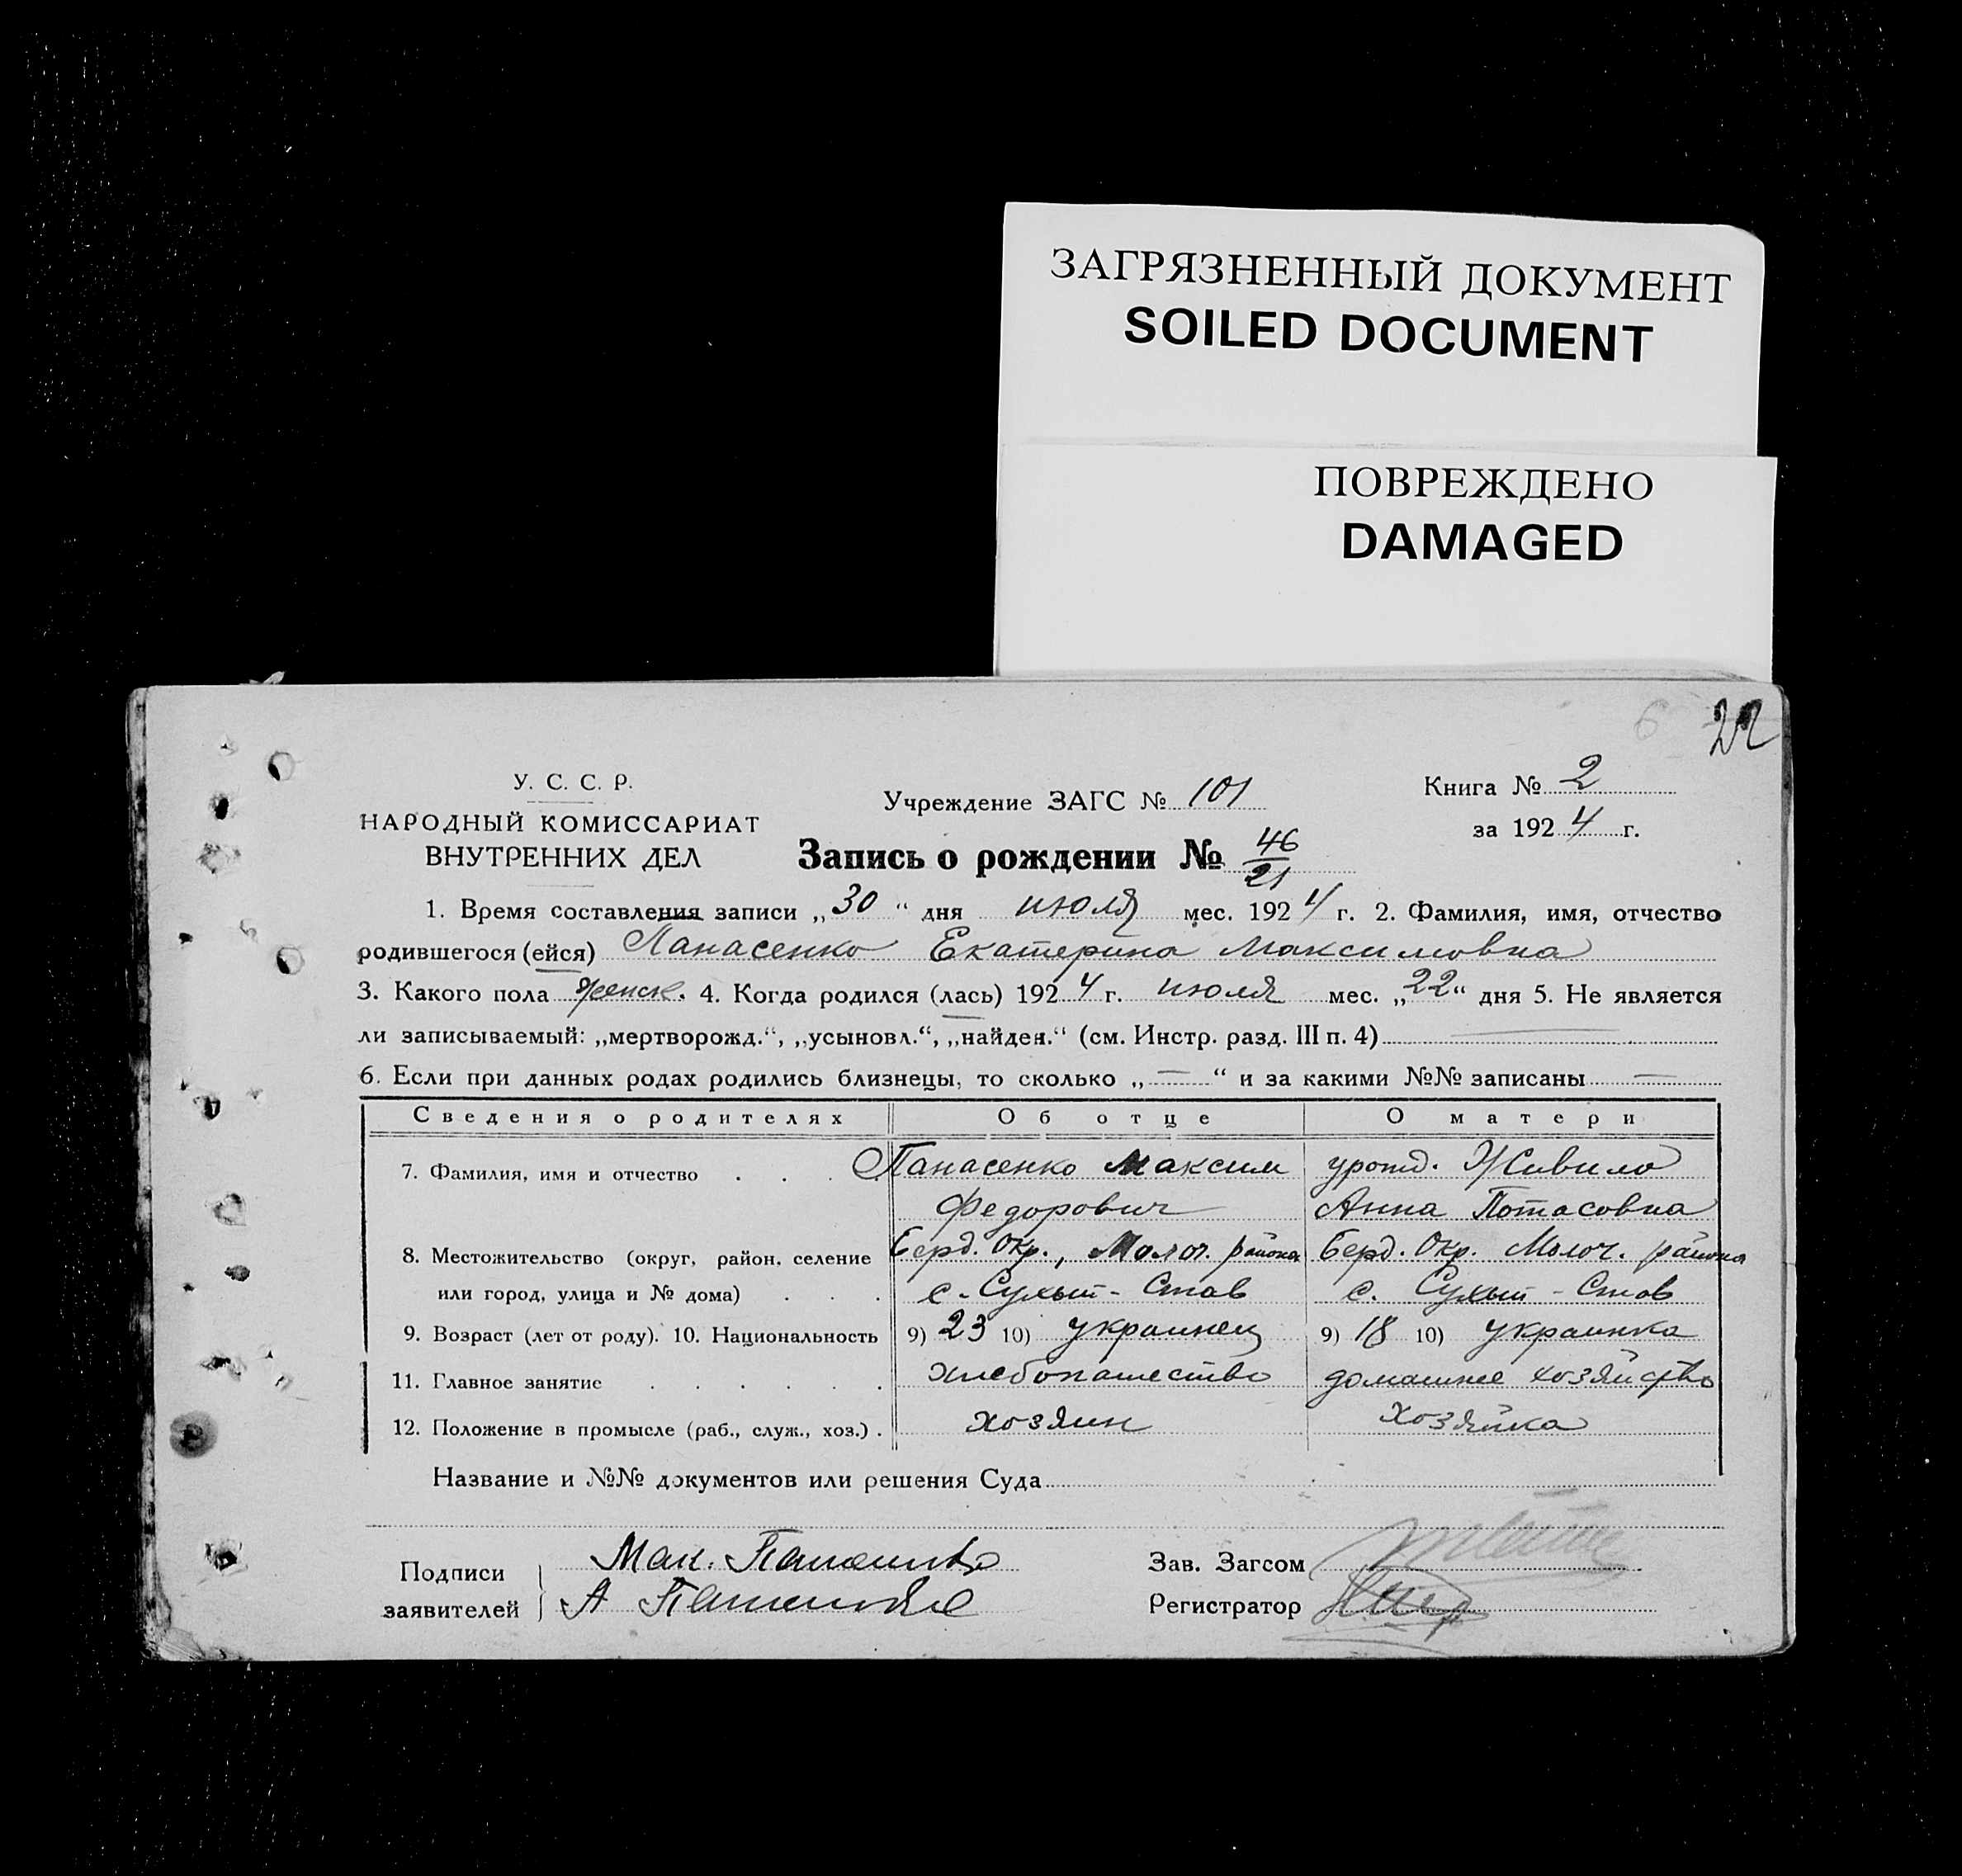 ЗАГРЯЗНЕННЫЙ ДОКУМЕНТ
SOILED DOCUMENT
ПОВРЕЖДЕНО
DAMAGED
6 22
У. С. С. Р.
НАРОДНЫЙ КОМИССАРИАТ
ВНУТРЕННИХ ДЕЛ
Учреждение ЗАГС № 101
Книга № 2
за 1924 г.
Запись о рождении № 46/21
1. Время составления записи „30“ дня июля мес. 1924 г. 2. Фамилия, имя, отчество
родившегося (ейся) Панасенко Екатерина Максимовна
3. Какого пола женск. 4. Когда родился (лась) 1924 г. июля мес. „22“ дня 5. Не является
ли записываемый: „мертворожд.“, „усыновл.“, „найден.“ (см. Инстр. разд. III п. 4) —
6. Если при данных родах родились близнецы, то сколько „—“ и за какими №№ записаны —
Сведения о родителях Об отце О матери
7. Фамилия, имя и отчество . . . Панасенко Максим урожд. Живило
Федорович Анна Потасовна
8. Местожительство (округ, район, селение Берд. Окр., Молоч. района Берд. Окр. Молоч. района
или город, улица и № дома) . . . с. Сухый-Став с. Сухый-Став
9. Возраст (лет от роду). 10. Национальность 9) 23 10) украинец 9) 18 10) украинка
11. Главное занятие . . . . . . хлебопашество домашнее хозяйство
12. Положение в промысле (раб., служ., хоз.) . хозяин хозяйка
Название и №№ документов или решения Суда
Подписи
заявителей
Мак. Панасенко
А
Зав. Загсом
Регистратор